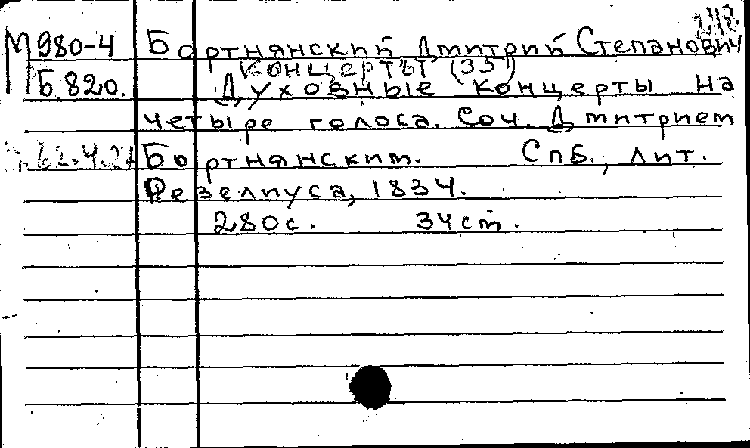 М 980-4 Бортнянский Дмитрий Степанович
Концерты (35)
Б.820. Духовные концерты на
четыре голоса. Соч. Дмитрием
Бортнянским. СПб., лит.
Резелиуса, 1834.
280с. 34см.